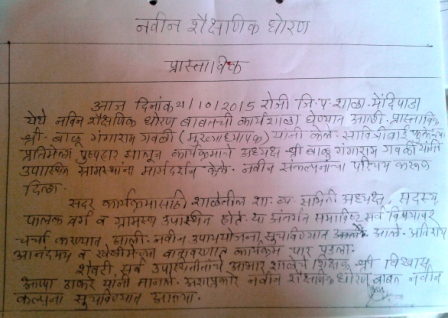 नवीन शैक्षणिक धोरण
प्रास्ताविक
आज दिनांक 21/10/2015 रोजी जि.प.शाळा मेंदिपाडा
येथे नविन शैक्षणिक धोरण बाबतची कार्यशाळा घेण्यात आली. प्रास्ताविक
श्री. बाळू गंगाराम गवळी (मुख्याध्यापक) यांनी केले. सावित्रीबाई फुलेंच्या
प्रतिमेस पुष्पहार घालून कार्यक्रमाचे अध्यक्ष श्री बाळू गंगाराम गवळी यांनी
उपास्थित ग्रामस्थांना मार्गदर्शन केले. नविन संकल्पनांचा परिचय करून
दिला.
सदर कार्यक्रमासाठी शाळेतील शा. व्य. समिती अध्यक्ष, सदस्य
पालक वर्ग व ग्रामस्थ उपास्थित होते. या अंतर्गत समाविष्ट सर्व विषयावर
चर्चा करण्यात आली. नवीन उपाययोजना सुचविण्यात आले. अतिशय
आनंदमय व खेळीमेळीच्या वातावरणात कार्यक्रम पार पडला.
शेवटी सर्व उपास्थितांचे आभार शाळेचे शिक्षक श्री विश्वास
ठाकरे यांनी मानले. अशाप्रकारे नविन शैक्षणिक धोरण बाबत नवीन
कल्पना सुचविण्यात आल्या.